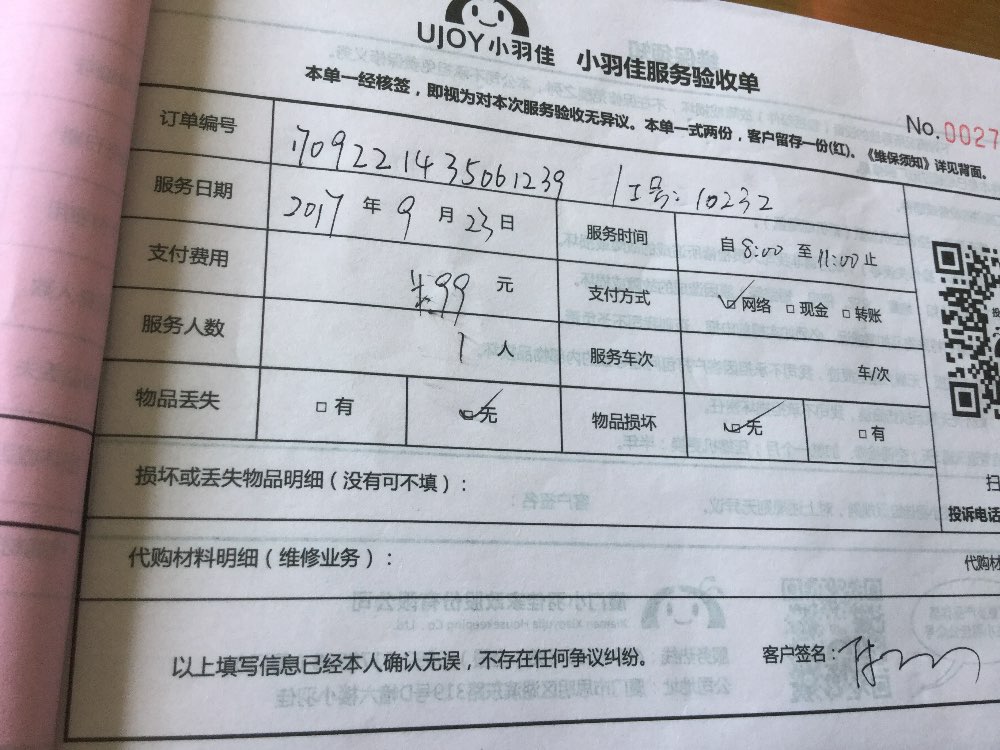 UJOY小羽佳 小羽佳服务验收单
本单一经核签，即视为对本次服务验收无异议。本单一式两份，客户留存一份(红)。《维保须知》详见背面。
No.0027
订单编号 1709221435061239 工号：10232
服务日期 2017 年 9 月 23 日 服务时间 自 8:00 至 11:00 止
支付费用 99 元 支付方式 网络 现金 转账
服务人数 1 人 服务车次 车/次
物品丢失 有 无 物品损坏 无 有
损坏或丢失物品明细（没有可不填）：
投诉电话
代购材料明细（维修业务）：
代购材
以上填写信息已经本人确认无误，不存在任何争议纠纷。 客户签名：